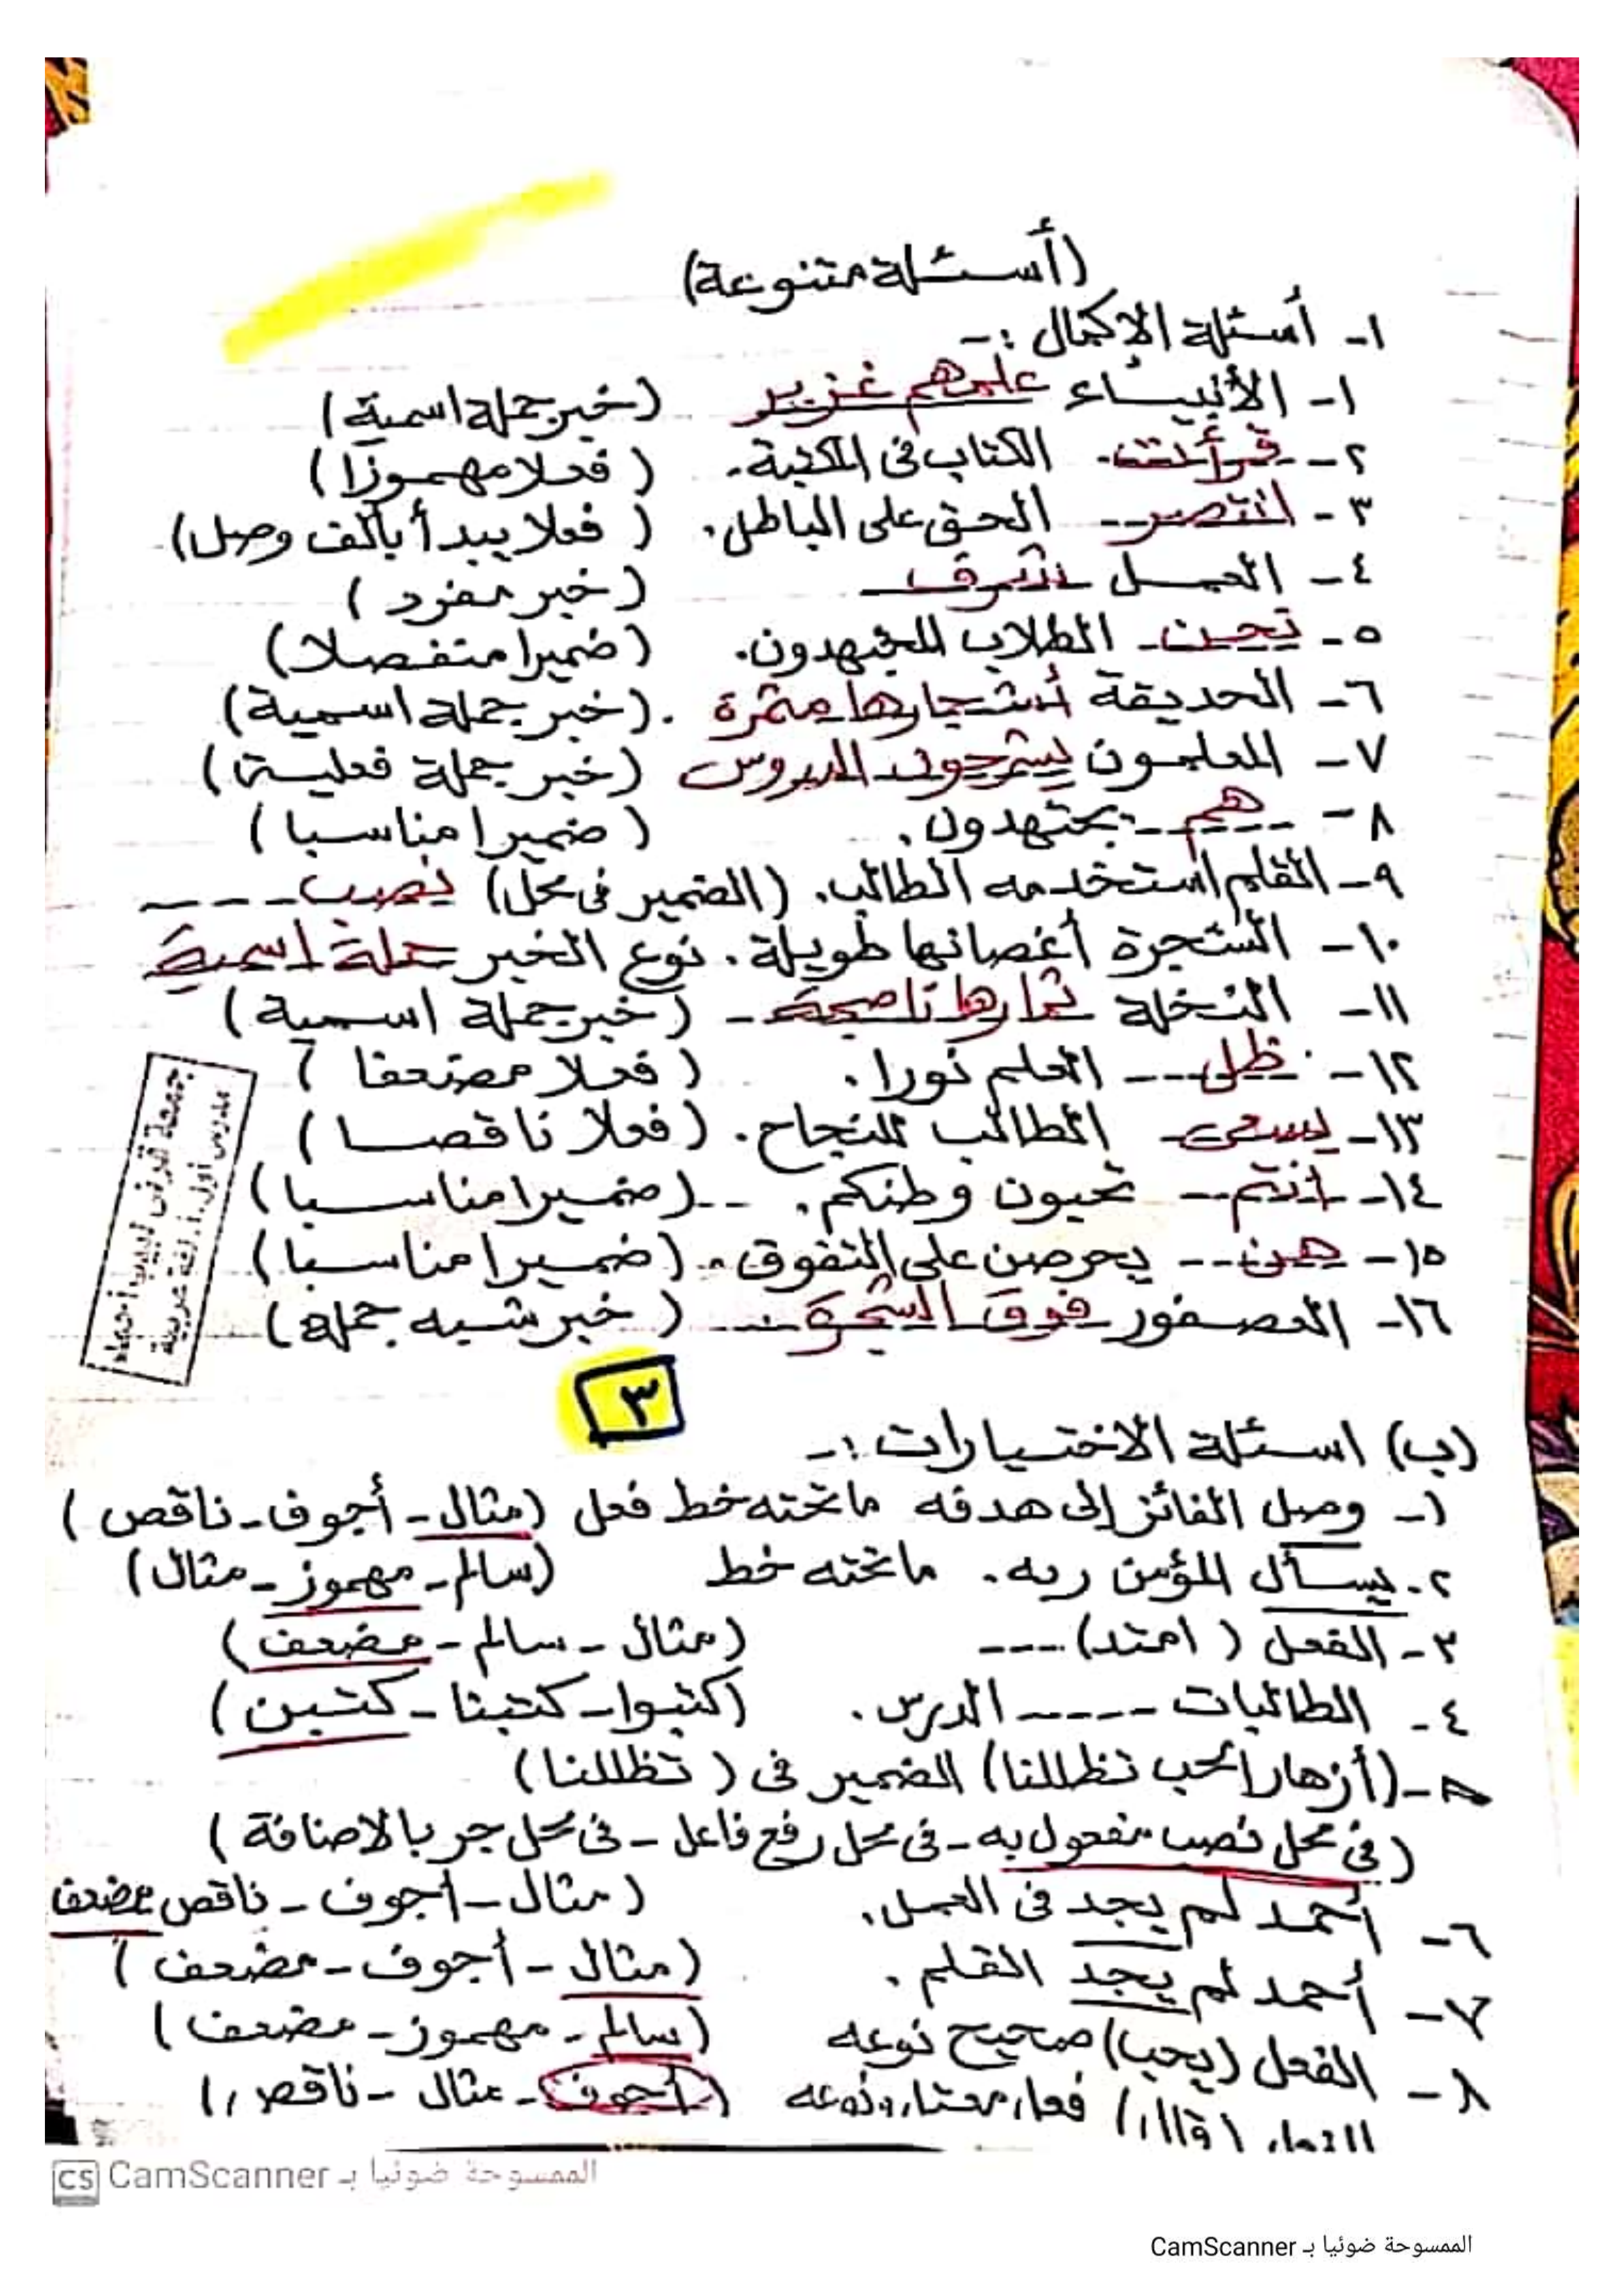 (أسئلة متنوعة)
١- أسئلة الإكمال :-
١- الأنبياء علمهم غزير (خبر جملة اسمية)
٢- قرأت الكتاب فى المكتبة. (فعلا مهموزا)
٣- انتصر الحق على الباطل. (فعلا يبدأ بألف وصل)
٤- العمل شرف (خبر مفرد)
٥- نحن الطلاب المجتهدون. (ضميرا منفصلا)
٦- الحديقة أشجارها مثمرة. (خبر جملة اسمية)
٧- المعلمون يشرحون الدروس (خبر جملة فعلية)
٨- هم يجتهدون. (ضميرا مناسبا)
٩- القلم استخدمه الطالب. (الضمير فى محل) نصب ----
١٠- الشجرة أغصانها طويلة. نوع الخبر جملة اسمية
١١- النخلة ثمارها ناضجة - (خبر جملة اسمية)
١٢- ظل --- العلم نورا. (فعلا مضعفا)
١٣- يسعى الطالب للنجاح. (فعلا ناقصا)
١٤- أنتم -- تحبون وطنكم. -- (ضميرا مناسبا)
١٥- هن -- يحرصن على التفوق. (ضميرا مناسبا)
١٦- العصفور فوق الشجرة --- (خبر شبه جملة)
مدرس أول أ. لغة عربية
٣
(ب) اسئلة الاختيارات :-
١- وصل الفائز إلى هدفه ما تحته خط فعل (مثال - أجوف - ناقص)
٢- يسأل المؤمن ربه. ما تحته خط (سالم - مهموز - مثال)
٣- الفعل (امتد) ---- (مثال - سالم - مضعف)
٤- الطالبات ----- الدرس. (كتبوا - كتبنا - كتبن)
٥- (أزهار الحب تظللنا) الضمير فى (تظللنا)
(فى محل نصب مفعول به - فى محل رفع فاعل - فى محل جر بالاضافة)
٦- أحمد لم يجد فى العمل. (مثال - أجوف - ناقص مضعف
٧- أحمد لم يجد القلم. (مثال - أجوف - مضعف)
٨- الفعل (يحب) صحيح نوعه (سالم - مهموز - مضعف)
الفعل (قال) فعل معتل ونوعه (أجوف - مثال - ناقص)
CS الممسوحة ضوئيا بـ CamScanner
الممسوحة ضوئيا بـ CamScanner